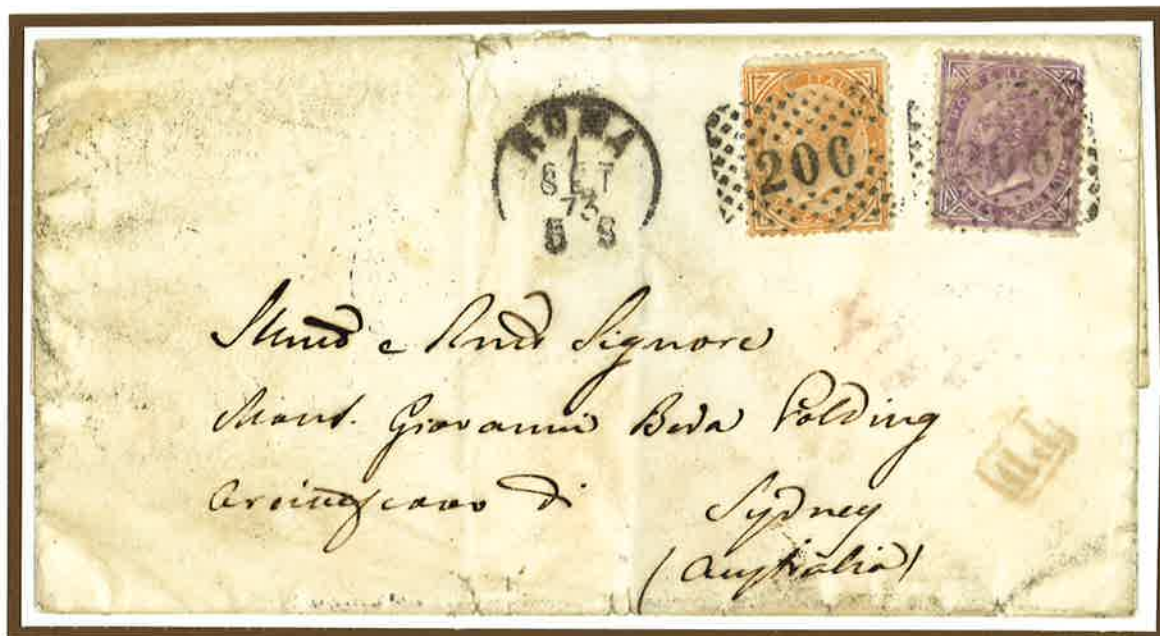 ROMA
1
SET
73
8 S
206
Illmo e Rmo Signore
Mons. Giovanni Beda Polding
Arcivescovo di Sydney
(Australia)